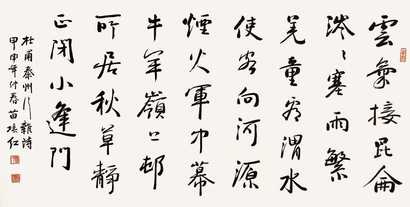 雲氣接昆侖
涔〻塞雨繁
羌童看渭水
使客向河源
煙火軍中幕
牛羊嶺上邨
所居秋草靜
正閉小蓬門
杜甫秦州行雜詩
甲申年仲春苗培红